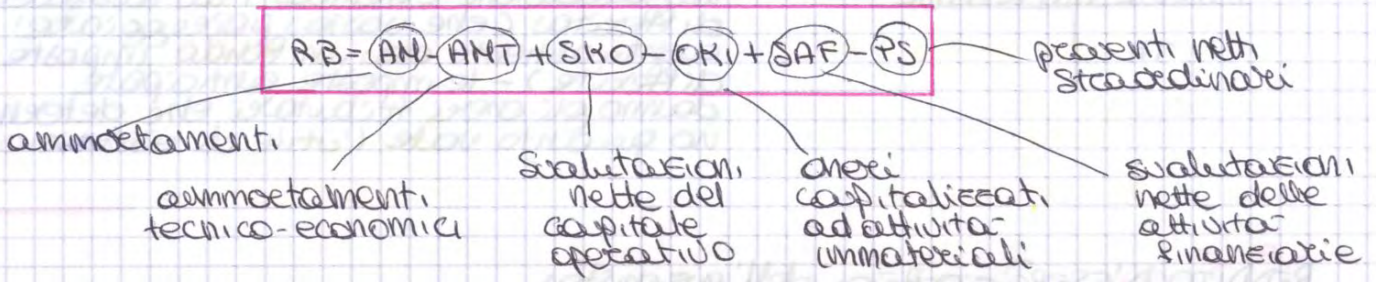 RB = AM - AMT + SKO - OKI + SAF - PS
proventi netti
straordinari
ammortamenti
ammortamenti
tecnico-economici
svalutazioni
nette del
capitale
operativo
oneri
capitalizzati
ad attività
immateriali
svalutazioni
nette delle
attività
finanziarie